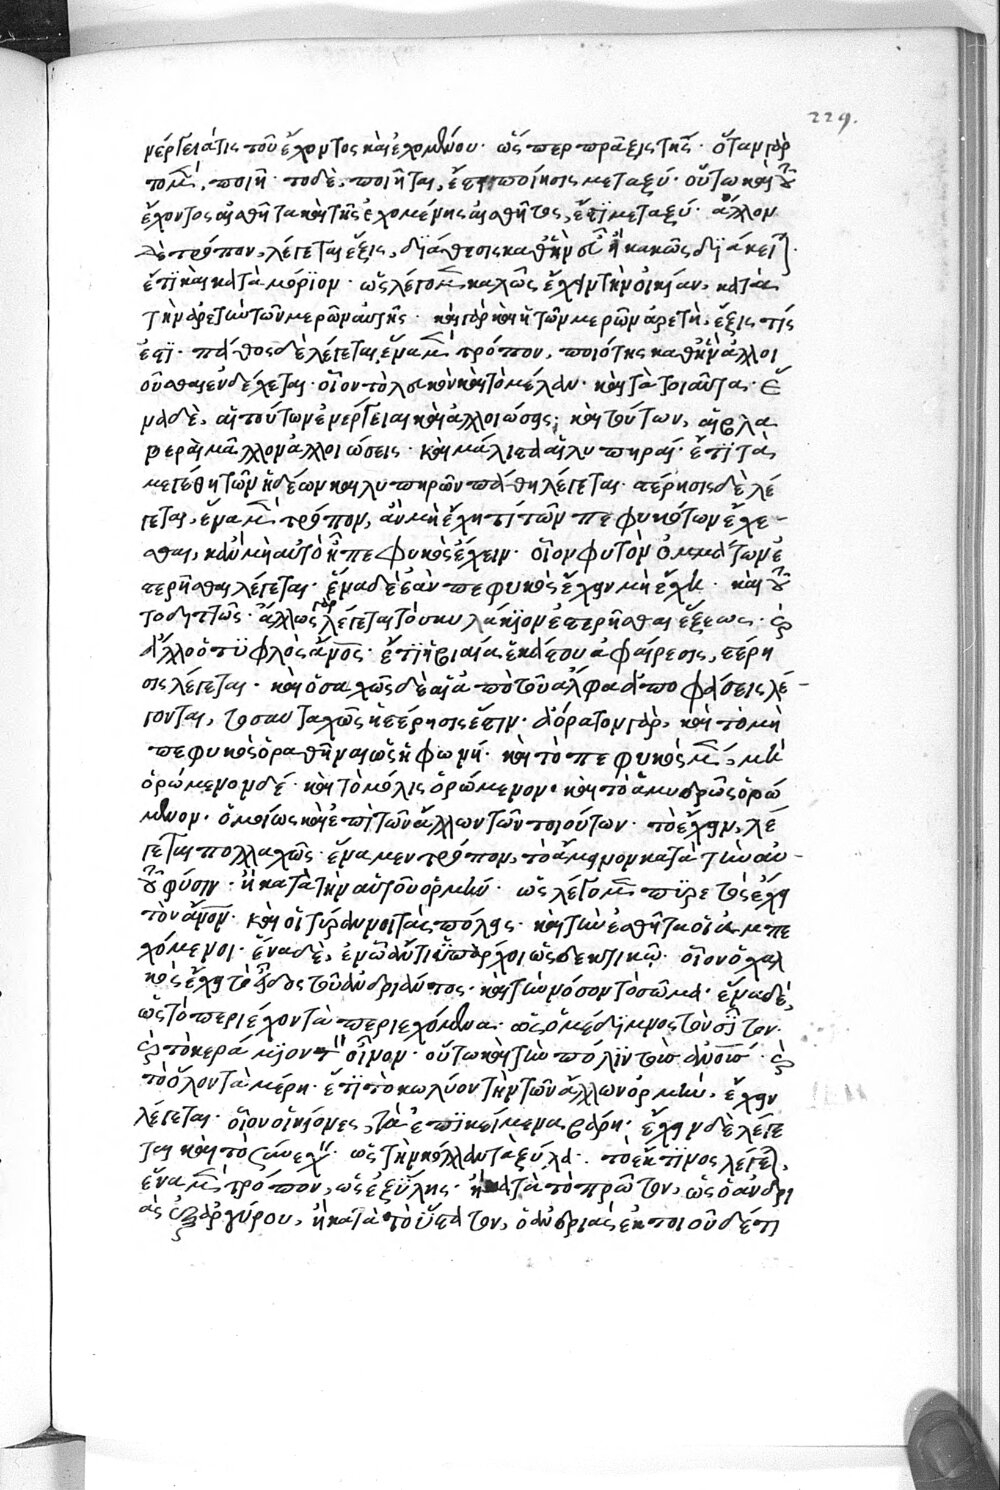 229.
νέργειά τις τοῦ ἔχοντος καὶ ἐχομένου· ὥσπερ πρᾶξις τίς· ὅταν γὰρ
τὸ μὲν, ποιῆ· τὸ δὲ, ποιῆται, ἔστι ποίησις μεταξύ· οὕτω καὶ τοῦ
ἔχοντος αἰσθῆτα καὶ τῆς ἐχομένης αἰσθῆτος, ἔστι μεταξύ· ἄλλον
δὲ τρόπον, λέγεται ἕξις, διάθεσις καθ' ἣν εὖ ἢ κακῶς διάκειται·
ἔτι καὶ κατὰ μόριον· ὡς λέγομεν καλῶς ἔχειν τὴν οἰκίαν, κατὰ
τὴν ἀρετὴν τῶν μερῶν αὐτῆς· καὶ γὰρ καὶ ἡ τῶν μερῶν ἀρετὴ, ἕξις τίς
ἐστι· πάθος δὲ λέγεται, ἕνα μὲν τρόπον, ποιότης καθ' ἣν ἀλλοι
οῦσθαι ἐνδέχεται· οἷον τὸ λευκὸν καὶ τὸ μέλαν· καὶ τὰ τοιαῦτα· ἕ
να δὲ, αἱ τούτων ἐνέργειαι καὶ ἀλλοιώσεις; καὶ τούτων, αἱ βλα
βεραὶ μᾶλλον ἀλλοιώσεις· καὶ μάλιστα αἱ λυπηραί· ἔτι τὰ
μεγέθη τῶν ἡδέων καὶ λυπηρῶν πάθη λέγεται· στέρησις δὲ λέ
γεται, ἕνα μὲν τρόπον, ἀν μὴ ἔχη τί τῶν πεφυκότων ἔχε-
σθαι, κἀν μὴ αὐτὸ ἦ πεφυκὸς ἔχειν· οἷον φυτὸν ὀμμάτων ἐ
στερῆσθαι λέγεται· ἕνα δὲ ἐὰν πεφυκὸς ἔχειν μὴ ἔχη· καὶ τοῦ
το διττῶς· ἄλλως γὰρ λέγεται τὸ σκυλάκιον ἐστερῆσθαι ἕξεως· καὶ
ἄλλο ὁ τυφλὸς ἄνος· ἔτι ἡ βιαία ἑκάστου ἀφαίρεσις, στέρη
σις λέγεται· καὶ ὁσαχῶς δὲ αἱ ἀπὸ τοῦ ἄλφα ἀποφάσεις λέ-
γονται, τοσαυταχῶς ἡ στέρησις ἔστιν· ἀόρατον γὰρ, καὶ τὸ μὴ
πεφυκὸς ὁραθῆναι ὡς ἡ φωνή· καὶ τὸ πεφυκὸς μὲν, μὴ
ὁρώμενον δέ· καὶ τὸ μόλις ὁρώμενον· καὶ τὸ ἀμυδρῶς ὁρώ
μενον· ὁμοίως καὶ ἐπὶ τῶν ἄλλων τῶν τοιούτων· τὸ ἔχειν, λέ
γεται πολλαχῶς· ἕνα μεν τρόπον, τὸ ἄγειν κατὰ τὴν αὑ-
τοῦ φύσιν· ἢ κατὰ τὴν αὑτοῦ ὁρμήν· ὡς λέγομεν πυρετὸς ἔχει
τὸν ἄνον· καὶ οἱ τύραννοι τὰς πόλεις· καὶ τὴν ἐσθῆτα οἱ ἀμπε
χόμενοι· ἕνα δὲ, ἐν ὧ ἄν τι ὑπάρχοι ὡς δεκτικῶ· οἷον ὁ χαλ
κὸς ἔχει τὸ εἶδος τοῦ ἀνδριάντος· καὶ τὴν νόσον τὸ σῶμα· ἕνα δὲ,
ὡς τὸ περιέχον τὰ περιεχόμενα· ὡς ὁ μέδιμνος τὸν σῖτον·
καὶ τὸ κεράμιον τὸν οἶνον· οὕτω καὶ τὴν πόλιν τοὺς ἀνους· καὶ
τὸ ὅλον τὰ μέρη· ἔτι τὸ κωλύον τὴν τῶν ἄλλων ὁρμὴν, ἔχειν
λέγεται· οἷον οἱ κίονες, τὰ ἐπικείμενα βάρη· ἔχειν δὲ λέγε
ται καὶ τὸ συνεχὲς· ὡς τὴν κόλλαν τὰ ξύλα· τὸ ἔκ τινος λέγεται,
ἕνα μὲν τρόπον, ὡς ἐξ ὕλης· ἢ κατὰ τὸ πρῶτον, ὡς ὁ ἀνδρι
ὰς ἐξ ἀργύρου, ἢ κατὰ τὸ ὕστατον, ὁ ἀνδριὰς ἐκ ποιοῦ δέ τι